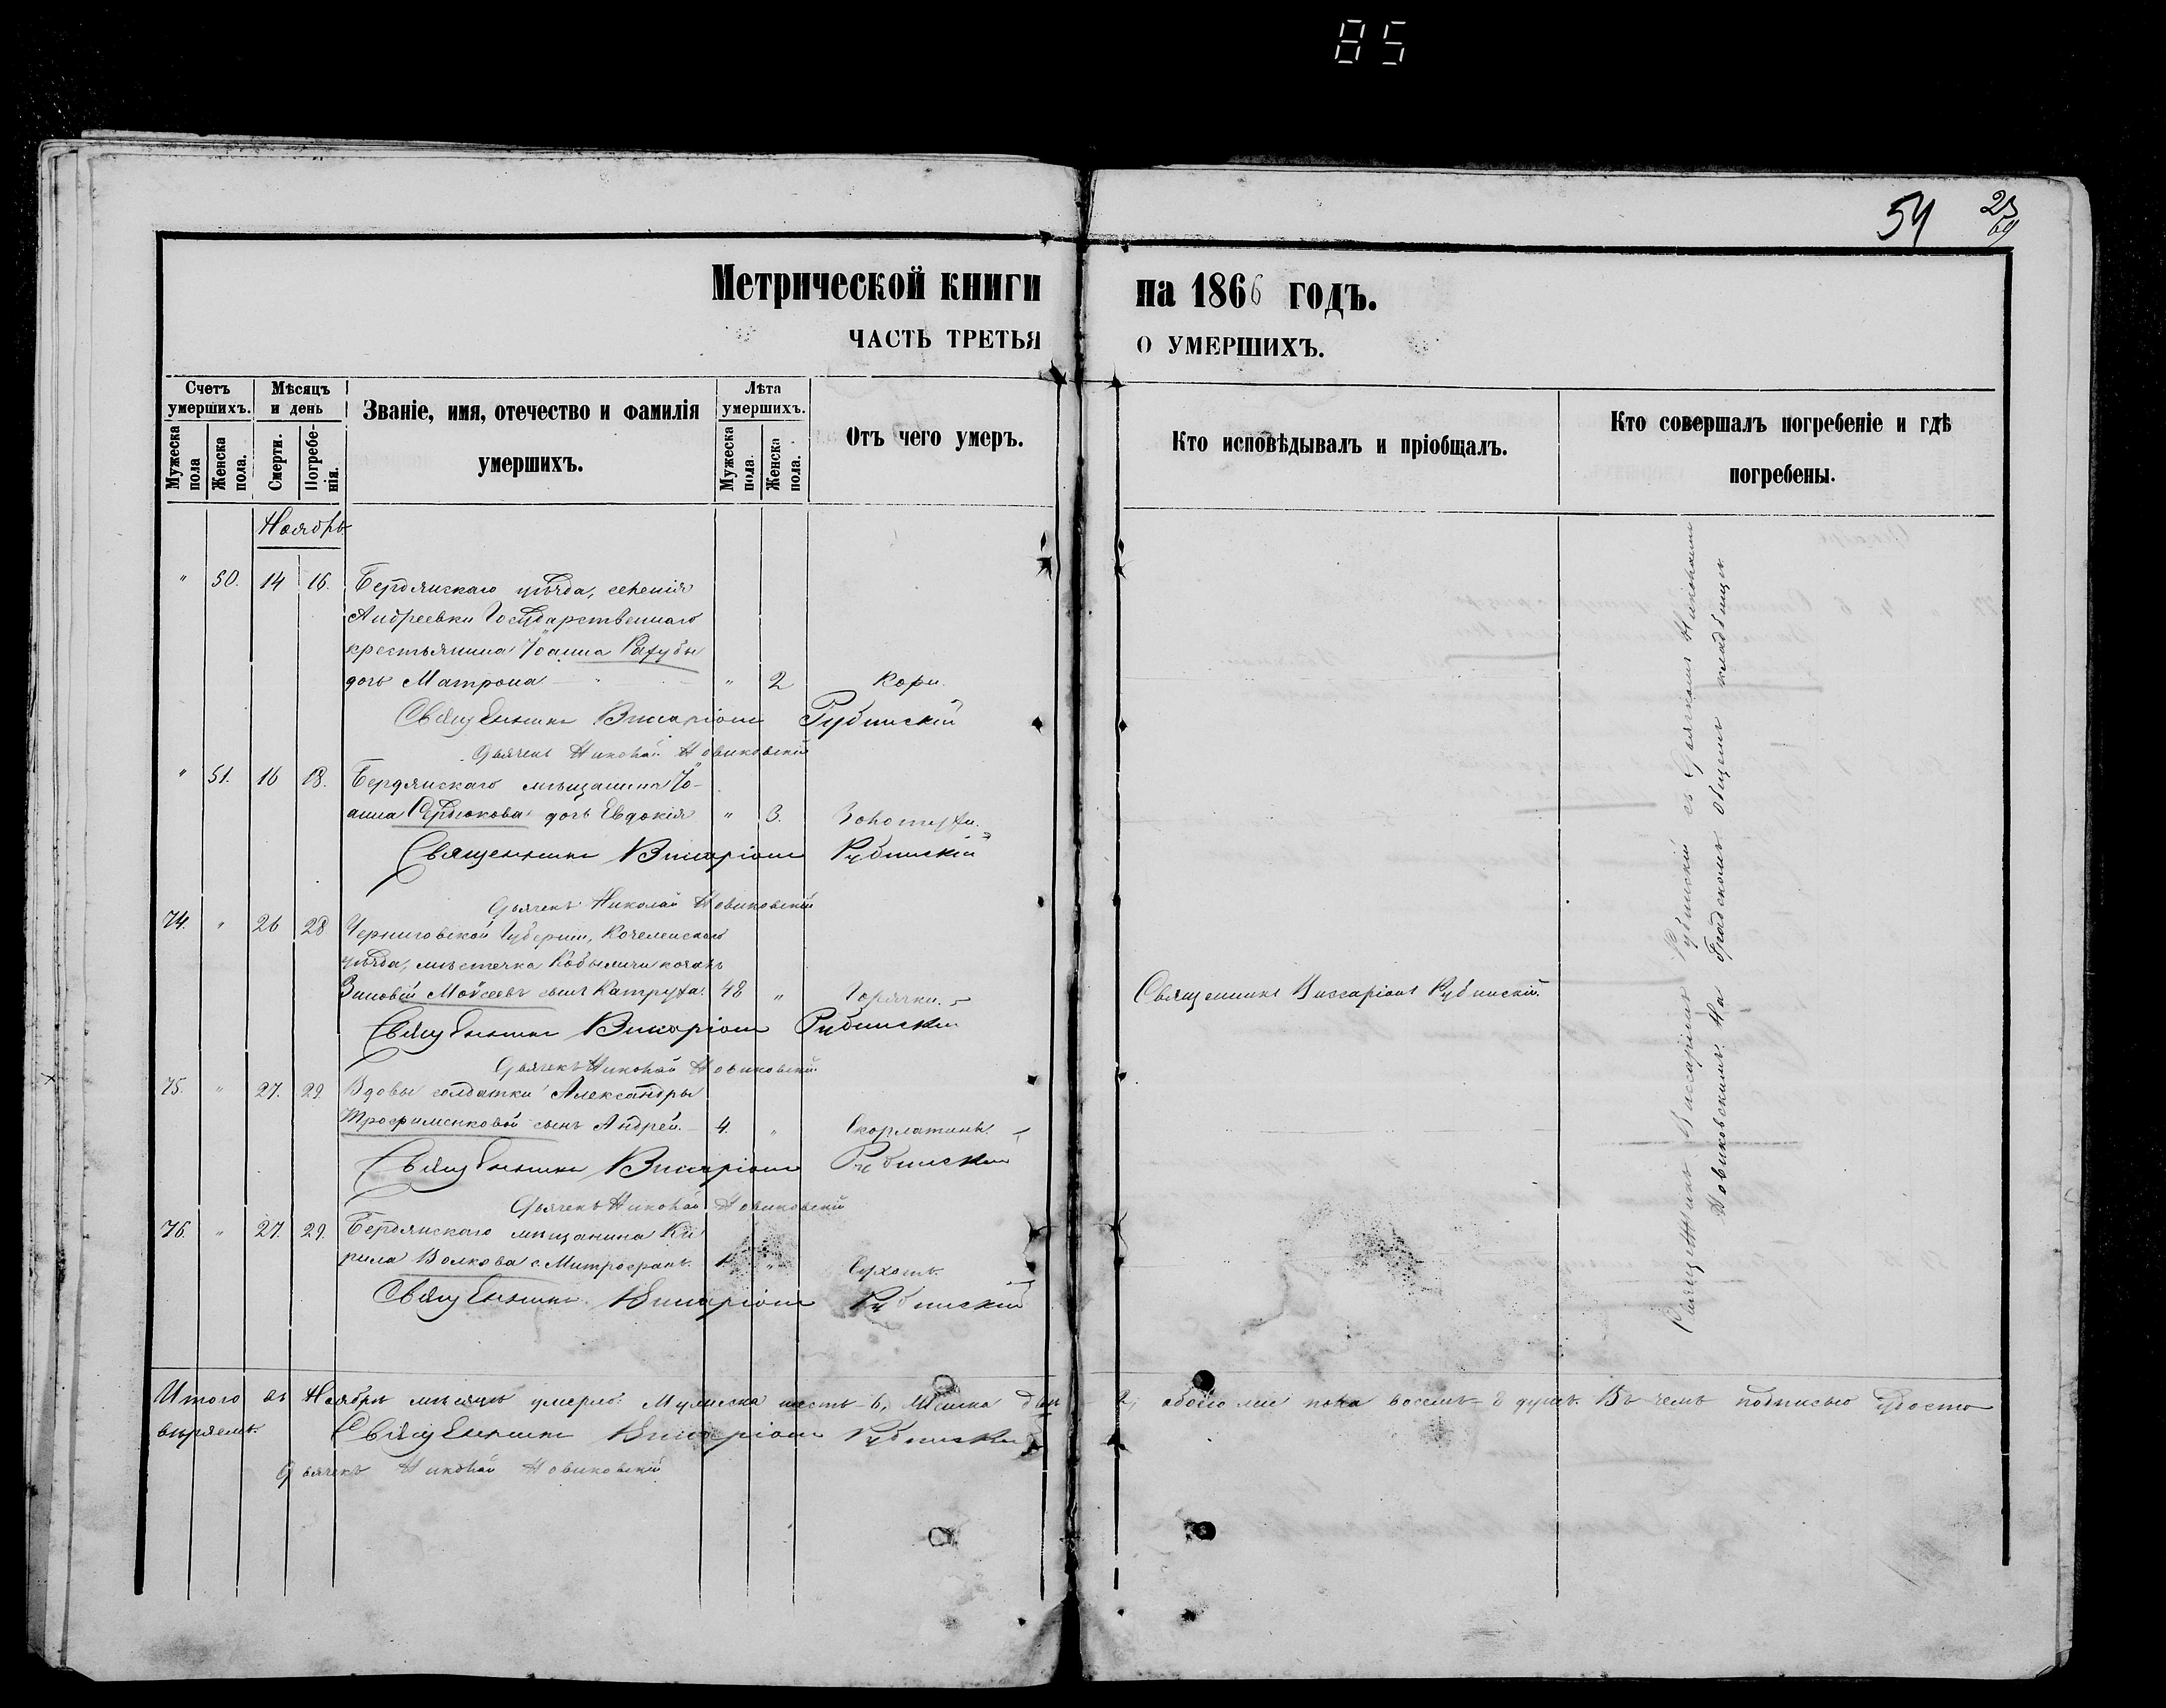 85
54
23
69
Метрической книги на 1866 годъ.
ЧАСТЬ ТРЕТЬЯ О УМЕРШИХЪ.
Счетъ умершихъ.
Мужеска пола
Женска пола.
Мѣсяцъ и день
Смерти.
Погребенія.
Званіе, имя, отечество и фамилія умершихъ.
Лѣта умершихъ.
Мужеска пола.
Женска пола.
Отъ чего умеръ.
Кто исповѣдывалъ и пріобщалъ.
Кто совершалъ погребеніе и гдѣ погребены.
Ноябрь
" 50. 14 16. Бердянскаго уѣзда, селенія
Андреевки Государственнаго
крестьянина Іоанна
дочь Матрона " 2 Кори.
Священникъ Висаріонъ Рубинскій
Дьячекъ Николай Новиковскій
" 51. 16 18. Бердянскаго мѣщанина Іо-
анна Сердюкова дочь Евдокія " 3. Золотухи.
Священникъ Висаріонъ Рубинскій
Дьячекъ Николай Новиковскій
74. " 26 28 Черниговской Губерніи,
уѣзда, мѣстечка казакъ
Зиновій Моѵсеевъ сынъ Катруха. 48 " Горячки.
Священникъ Виссаріонъ Рубинскій.
Священникъ Висаріонъ Рубинскій
Дьячекъ Николай Новиковскій
75. " 27. 29. Вдовы солдатки Александры
Трофименковой сынъ Андрей. 4. " Скорлатины.
Священникъ Висаріонъ Рубинскій
Дьячекъ Николай Новиковскій
76. " 27. 29. Бердянскаго мѣщанина Ки
рила Волкова с. Митрофанъ. 1 " Сухотъ.
Священникъ Висаріонъ Рубинскій
Священникъ Виссаріонъ Рубинскій съ Дьячкомъ Николаемъ
Новиковскимъ. На Градскомъ общемъ кладбищѣ
Итого въ Ноябрѣ мѣсяцѣ умерло: Мужеска шесть - 6, Женска двѣ 2, обоего пола восемь - 8 душъ. Въ чемъ подписью удосто
вѣряемъ.
Священникъ Висаріонъ Рубинскій
Дьячекъ Николай Новиковскій